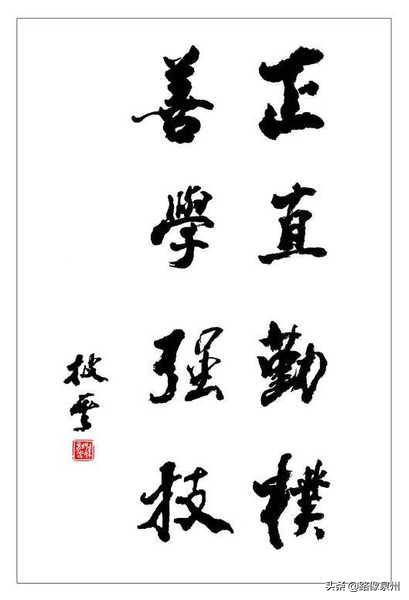 正直勤樸
善學强技
披雲
头条 @路像泉州